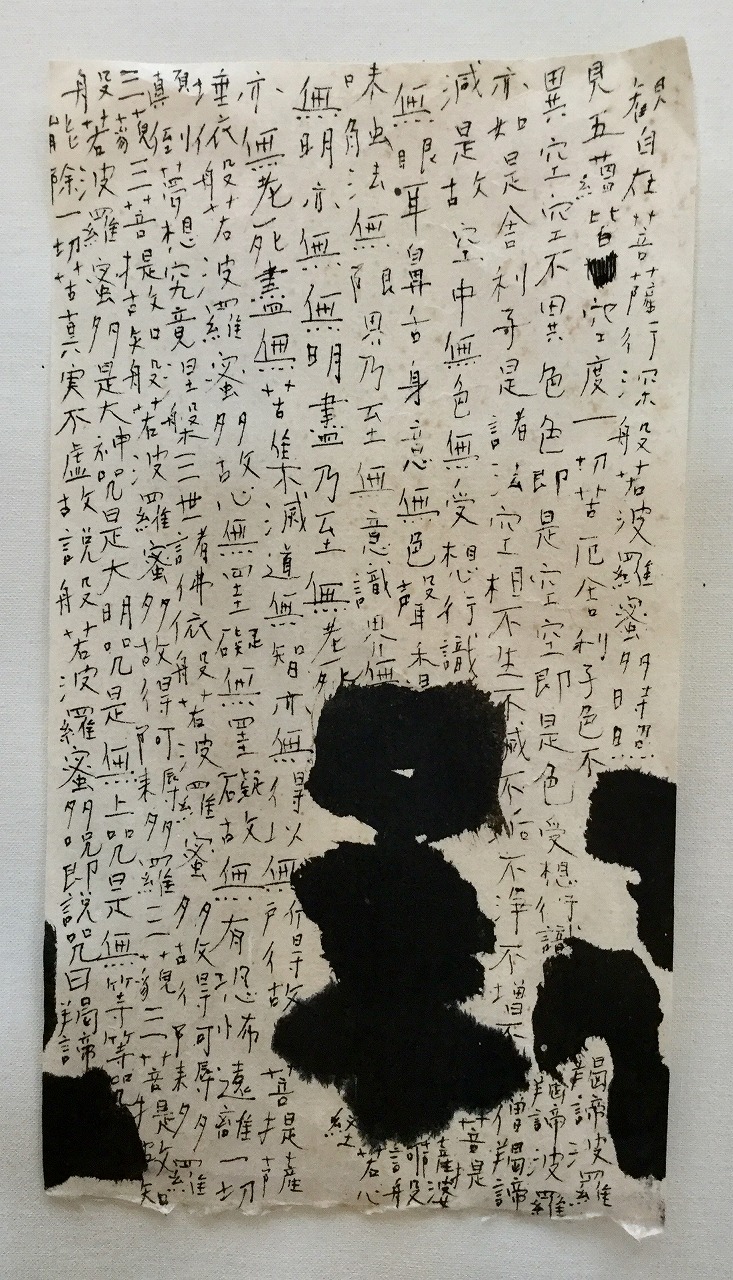 観自在菩薩行深般若波羅蜜多時照
見五蘊皆空度一切苦厄舎利子色不
異空空不異色色即是空空即是色受想行識
亦如是舎利子是諸法空相不生不滅不垢不浄不増不
減是故空中無色無受想行識
無眼耳鼻舌身意無色声香
味触法無眼界乃至無意識界無
無明亦無無明盡乃至無老死
亦無老死盡無苦集滅道無智亦無得以無所得故菩提薩
埵依般若波羅蜜多故心無罣礙無罣礙故無有恐怖遠離一切
顛倒夢想究竟涅槃三世諸佛依般若波羅蜜多故得阿耨多羅
三藐三菩提故知般若波羅蜜多故得阿耨多羅三藐三菩提故知
般若波羅蜜多是大神咒是大明咒是無上咒是無等等咒
能除一切苦真実不虚故説般若波羅蜜多咒即説咒曰羯諦
羯諦波羅
羯諦波羅
僧羯諦
菩提
薩婆訶
般若心
経